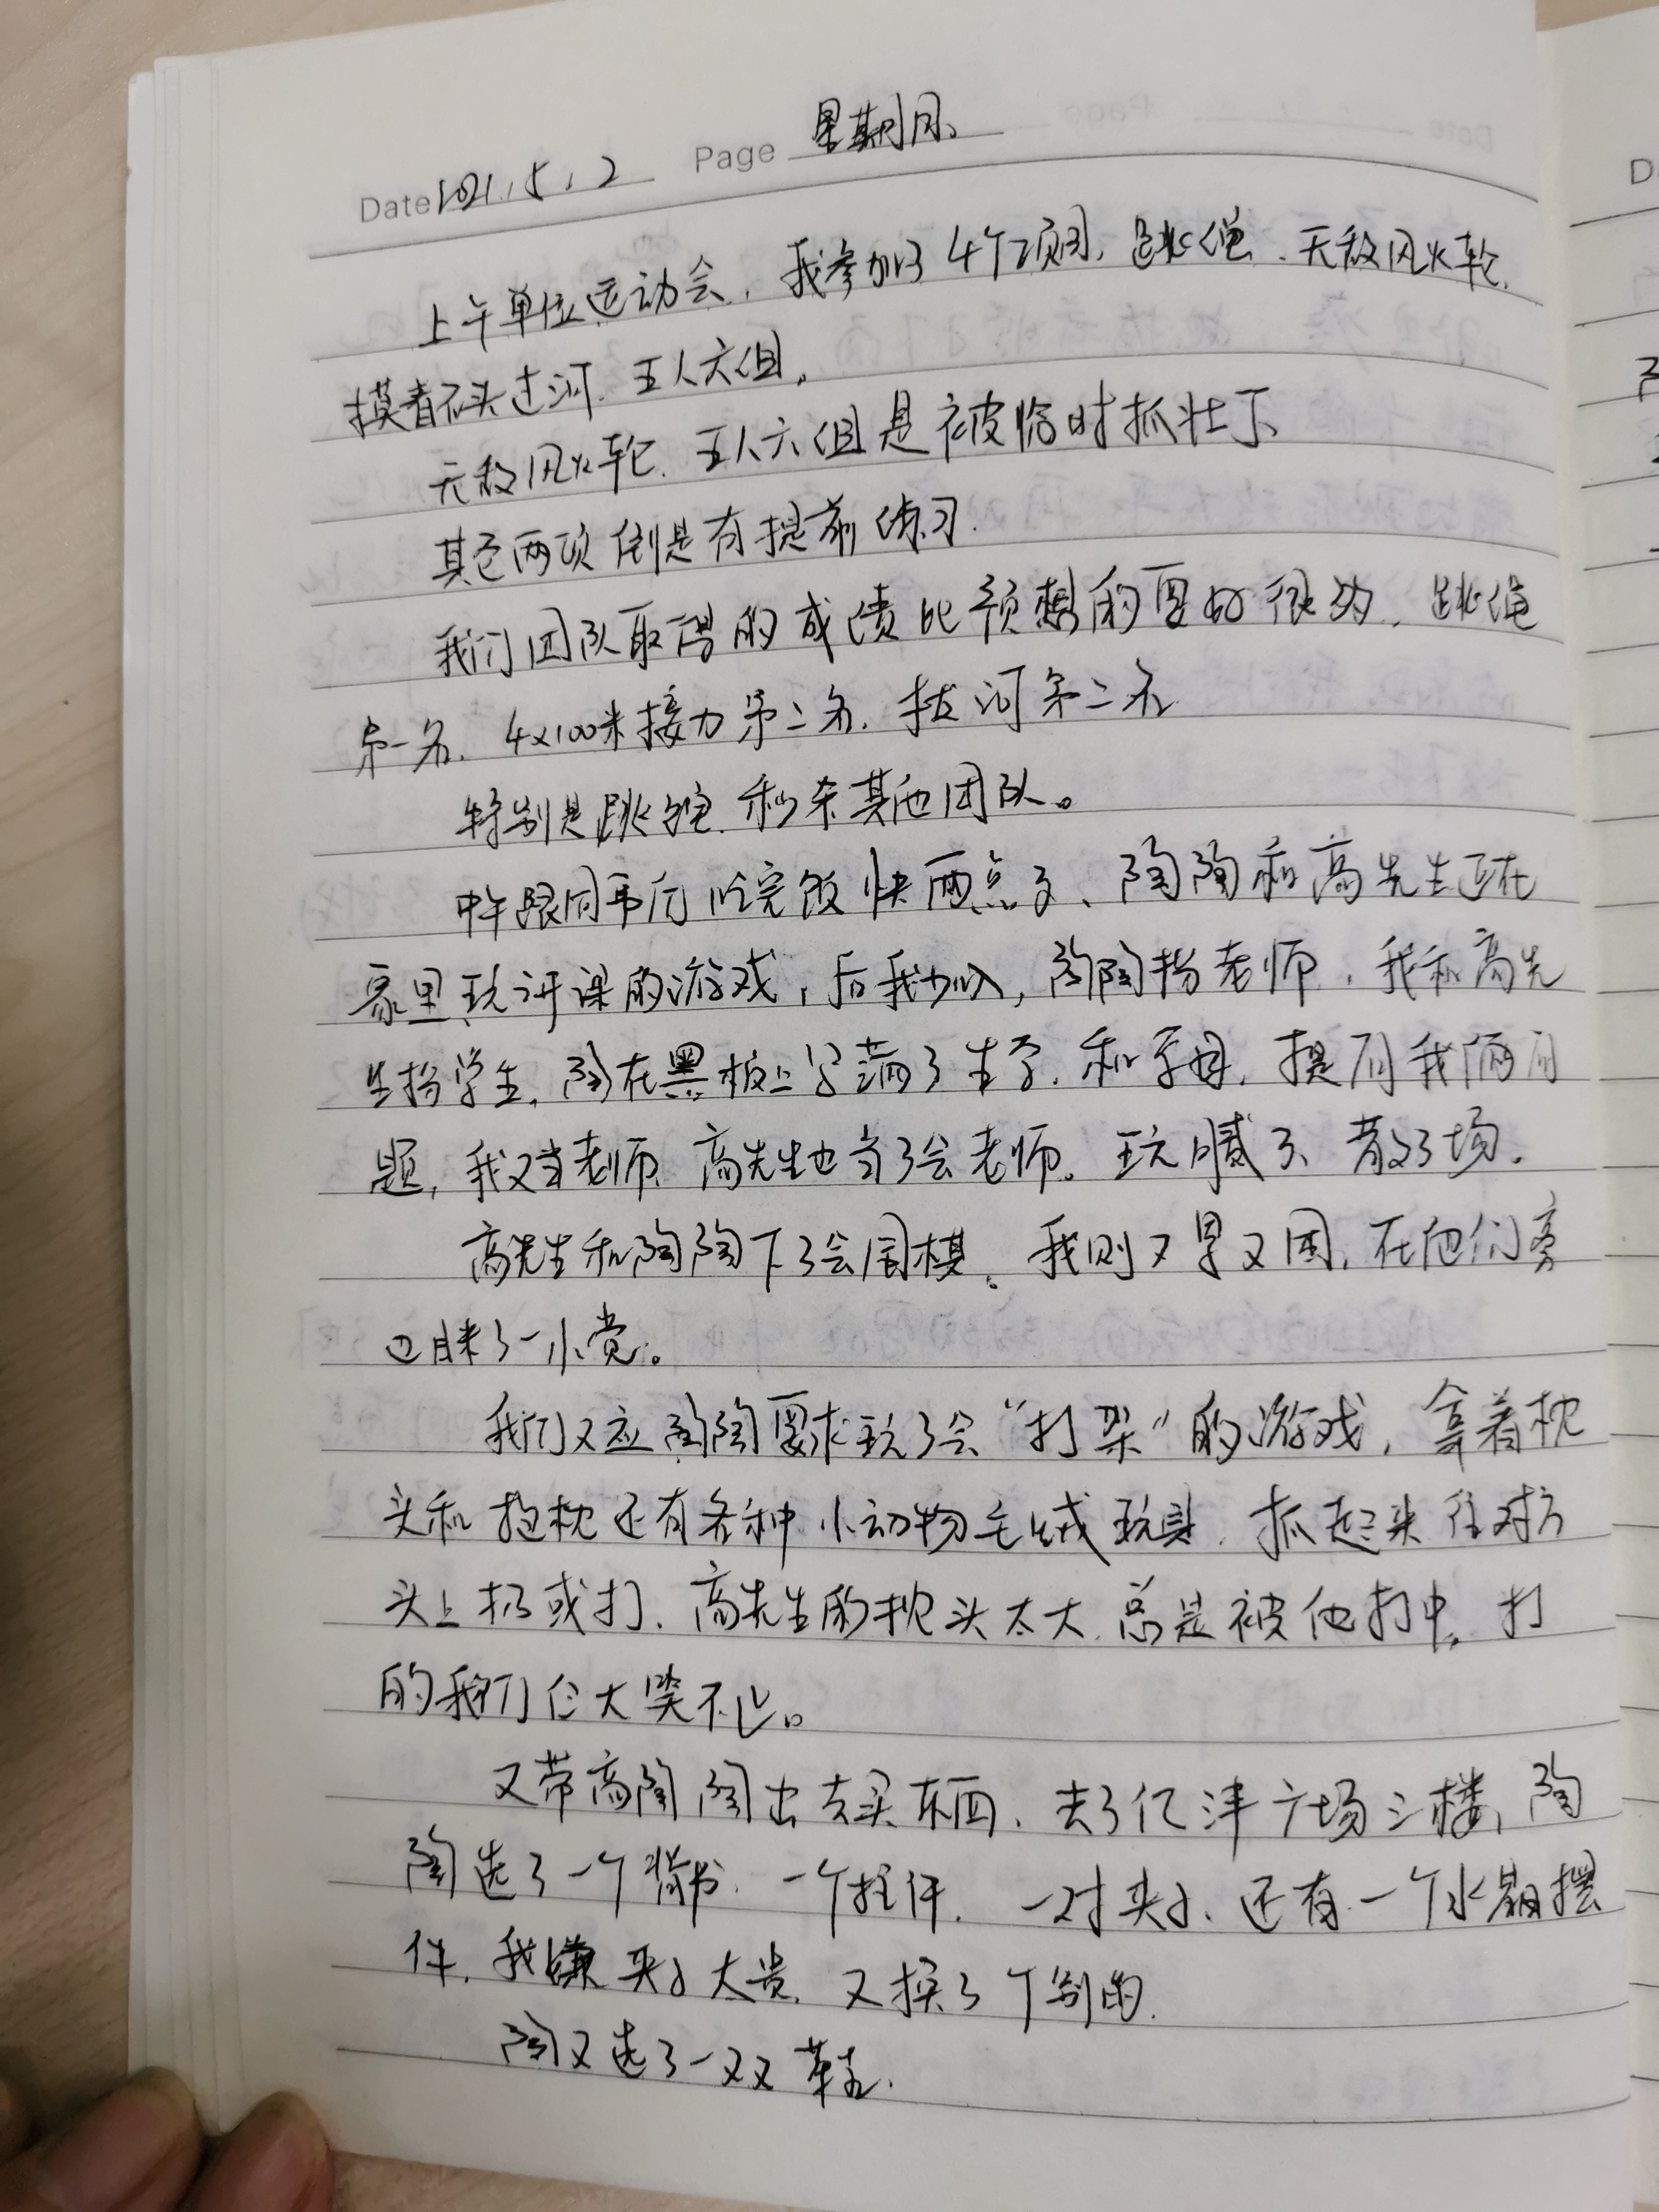 Date 2021.5.2 Page 星期日
上午单位运动会，我参加了4个项目，跳绳、无敌风火轮、
摸着石头过河、五人六组。
无敌风火轮、五人六组是被临时抓壮丁、
其它两项倒是有提前练习.
我们团队取得的成绩比预想的要好很多，跳绳
第一名、4x100米接力第二名、拔河第二名
特别是跳绳、秒杀其他团队。
中午跟同事们吃完饭快两点了、陶陶和高先生正在
家里玩讲课的游戏，后我加入，陶陶扮老师，我和高先
生扮学生，陶在黑板上写满了生字，和字母，提问我俩问
题，我又当老师、高先生也当了会老师。玩腻了、散了场.
高先生和陶陶下了会围棋。我则又累又困，在他们旁
边眯了一小觉。
我们又应陶陶要求玩了会“打架”的游戏，拿着枕
头和抱枕还有各种小动物毛绒玩具，抓起来往对方
头上扔或打、高先生的枕头太大、总是被他打中，打
的我们仨大笑不止。
又带高陶陶出去买东西、去了亿津广场三楼，陶
陶选了一个背书、一个挂件、一对夹子、还有一个水晶摆
件，我嫌夹子太贵、又换了个别的.
陶又选了一双鞋.